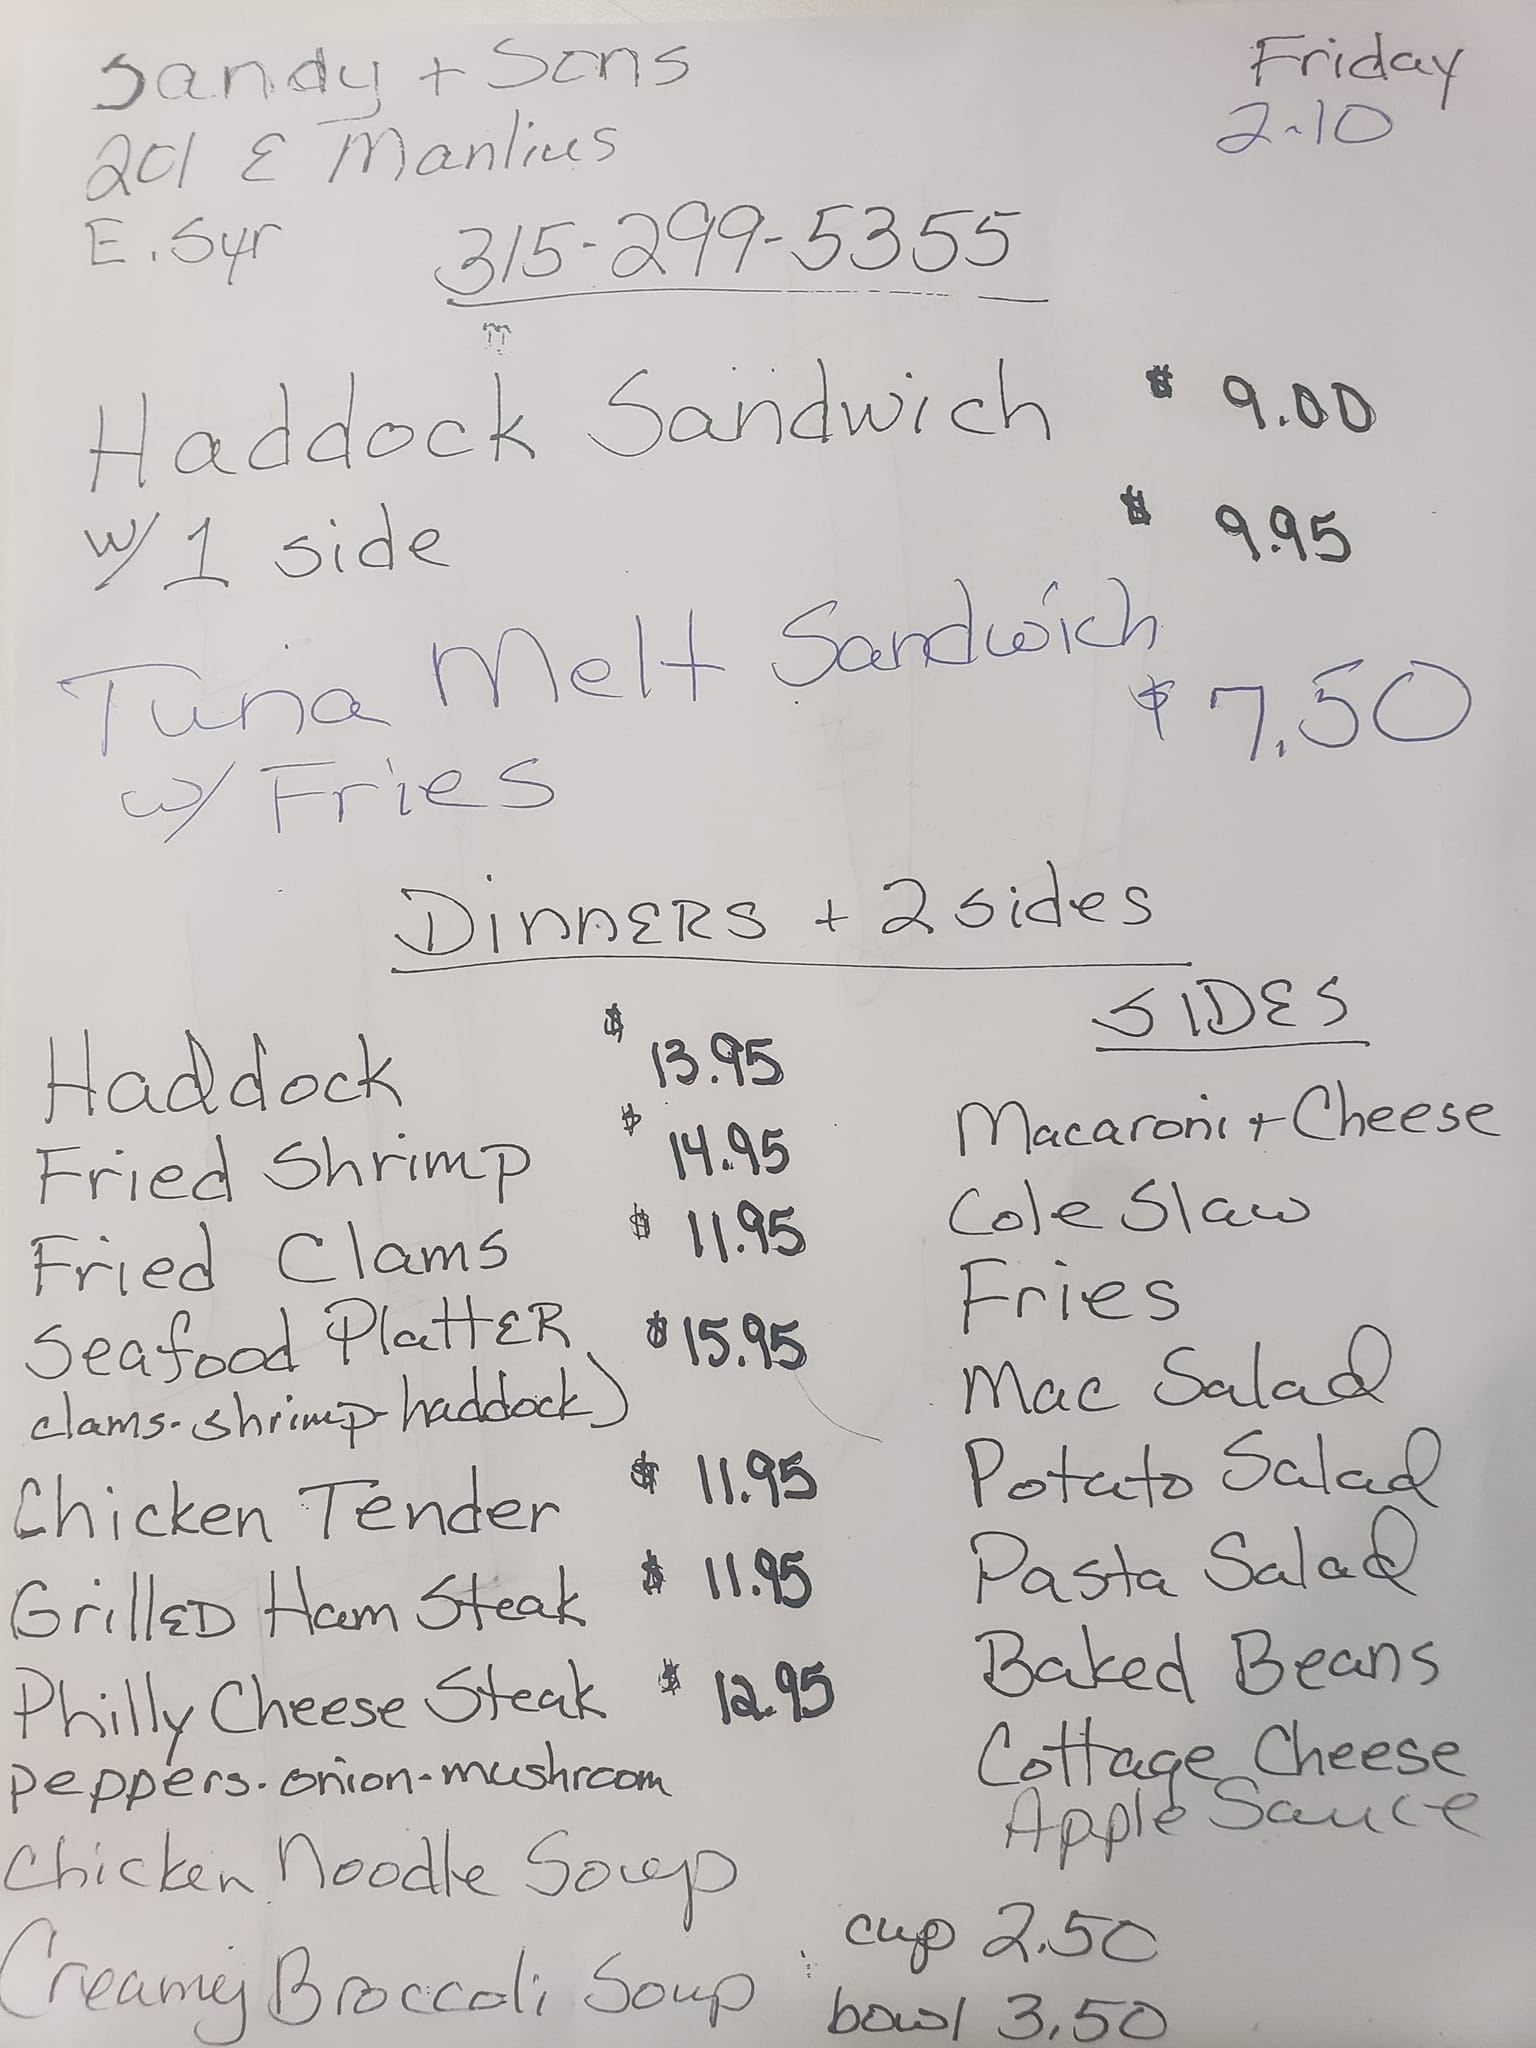 Sandy + Sons
Friday
201 E Manlius
2-10
E. Syr
315-299-5355
Haddock Sandwich $ 9.00
w/ 1 side $ 9.95
Tuna Melt Sandwich
w/ Fries $ 7.50
DinnERS + 2 sides
Haddock $ 13.95
Fried Shrimp $ 14.95
Fried Clams $ 11.95
Seafood PlattER $ 15.95
clams-shrimp-haddock)
Chicken Tender $ 11.95
GrillED Ham Steak $ 11.95
Philly Cheese Steak $ 12.95
peppers-onion-mushroom
SIDES
Macaroni + Cheese
Cole Slaw
Fries
Mac Salad
Potato Salad
Pasta Salad
Baked Beans
Cottage Cheese
Apple Sauce
Chicken Noodle Soup
Creamy Broccoli Soup
cup 2.50
bowl 3.50